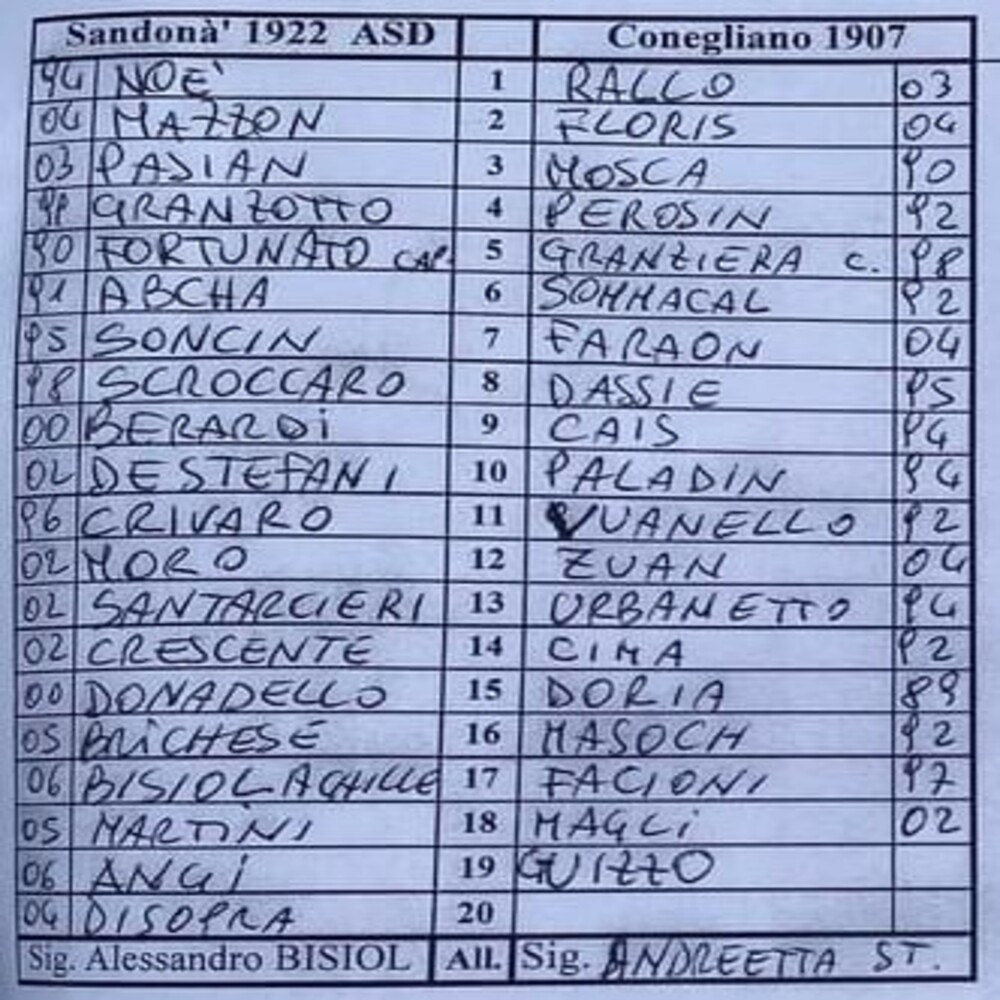 Sandonà' 1922 ASD Conegliano 1907
94 NOE' 1 RALLO 03
04 MAZZON 2 FLORIS 04
03 PASIAN 3 MOSCA 90
GRANZOTTO 4 PEROSIN 92
90 FORTUNATO CAP. 5 GRANZIERA C. 98
91 ABCHA 6 SOMMACAL 92
95 SONCIN 7 FARAON 04
98 SCROCCARO 8 DASSIE 95
00 BERARDI 9 CAIS 94
02 DE STEFANI 10 PALADIN 94
96 CRIVARO 11 VUANELLO 92
02 MORO 12 ZUAN 04
02 SANTARCIERI 13 URBANETTO 94
02 CRESCENTE 14 CIMA 92
00 DONADELLO 15 DORIA 89
05 BRICHESE 16 MASOCH 92
06 BISIOL ACHILLE 17 FACIONI 97
05 MARTINI 18 MAGLI 02
06 ANGI 19 GUIZZO
04 DISOPRA 20
Sig. Alessandro BISIOL All. Sig. ANDREETTA ST.